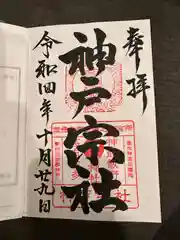 奉拝
神戸宗社
令和四年十月廿九日